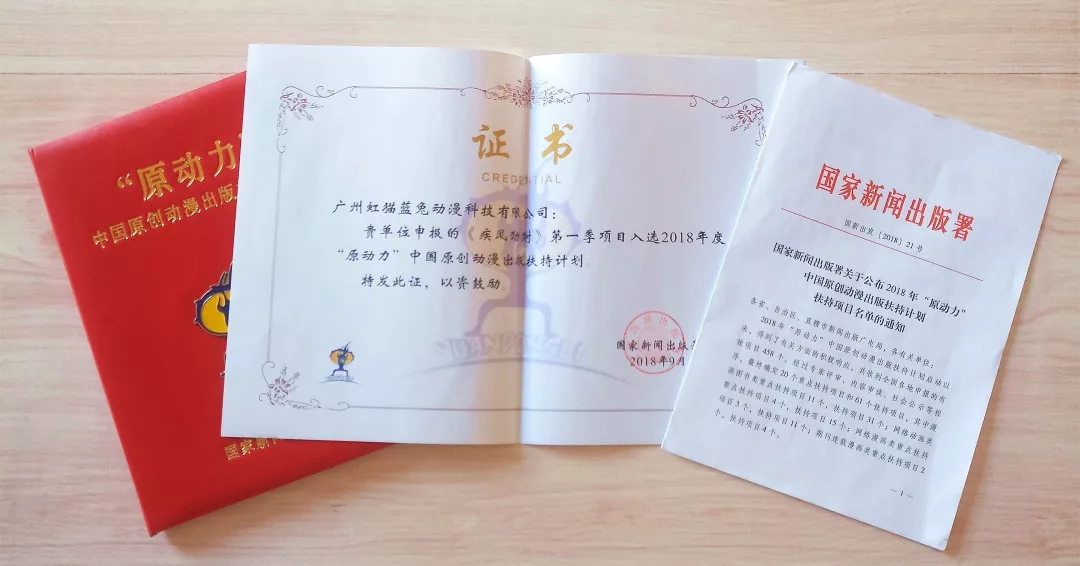 “原动力
中国原创动漫出版
国家新
证书
CREDENTIAL
广州虹猫蓝兔动漫科技有限公司：
贵单位申报的《疾风劲射》第一季项目入选2018年度
“原动力”中国原创动漫出版扶持计划。
特发此证，以资鼓励。
YUANDONGLI
国家新闻出版
2018年9月
国家新闻出版署
国新出发〔2018〕21号
国家新闻出版署关于公布2018年“原动力”
中国原创动漫出版扶持计划
扶持项目名单的通知
各省、自治区、直辖市新闻出版广电局，各有关单位：
2018年“原动力”中国原创动漫出版扶持计划启动以
来，得到了有关方面的积极响应，共收到全国各地申报的有
效项目458个。经过专家评审、内容审读、社会公示等程
序，最终确定20个重点扶持项目和61个扶持项目。其中漫
画图书类重点扶持项目11个，扶持项目31个；网络动画类
重点扶持项目4个，扶持项目15个；网络漫画类重点扶持
项目3个，扶持项目11个；期刊连载漫画类重点扶持项目2
个，扶持项目4个。
— 1 —